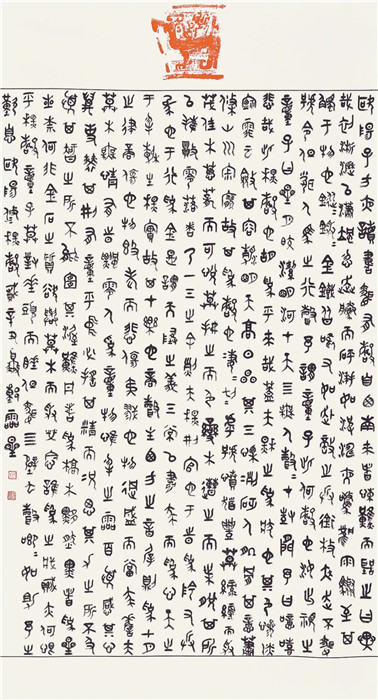 歐陽子方夜讀書聞有聲自西南來者悚然而聽之曰異
哉初淅瀝以瀟颯忽奔騰而砰湃如波濤夜驚風雨驟至其
觸于物也鏦鏦錚錚金鐵皆鳴又如赴敵之兵銜枚疾走不聞
號令但聞人馬之行聲予謂童子此何聲也汝出視之
童子曰星月皎潔明河在天四無人聲聲在樹間予曰噫嘻
悲哉此秋聲也胡為乎來哉蓋夫秋之為狀也其色慘淡
煙霏雲斂其容清明天高日晶其氣慄冽砭人肌骨其意蕭
條山川寂寥故其為聲也淒淒切切呼號憤發豐草綠縟而爭
茂佳木蔥蘢而可悅草拂之而色變木遭之而葉脫其所以
摧敗零落者乃一氣之餘烈夫秋刑官也于時為陰又兵
象也于行為金是謂天地之義氣常以肅殺而為心天之
于物春生秋實故其在樂也商聲主西方之音夷則為七月
之律商傷也物既老而悲傷夷戮也物過盛而當殺嗟夫
草木無情有時飄零人為動物惟物之靈百憂感其心
萬事勞其形有動乎中必搖其精而況思其力之所不及
憂其智之所不能宜其渥然丹者為槁木黟然黑者為星
星奈何非金石之質欲與草木而爭榮念誰為之戕賊亦何恨
乎秋聲童子莫對垂頭而睡但聞四壁蟲聲唧唧如助予之
歎息 歐陽修秋聲賦 辛丑